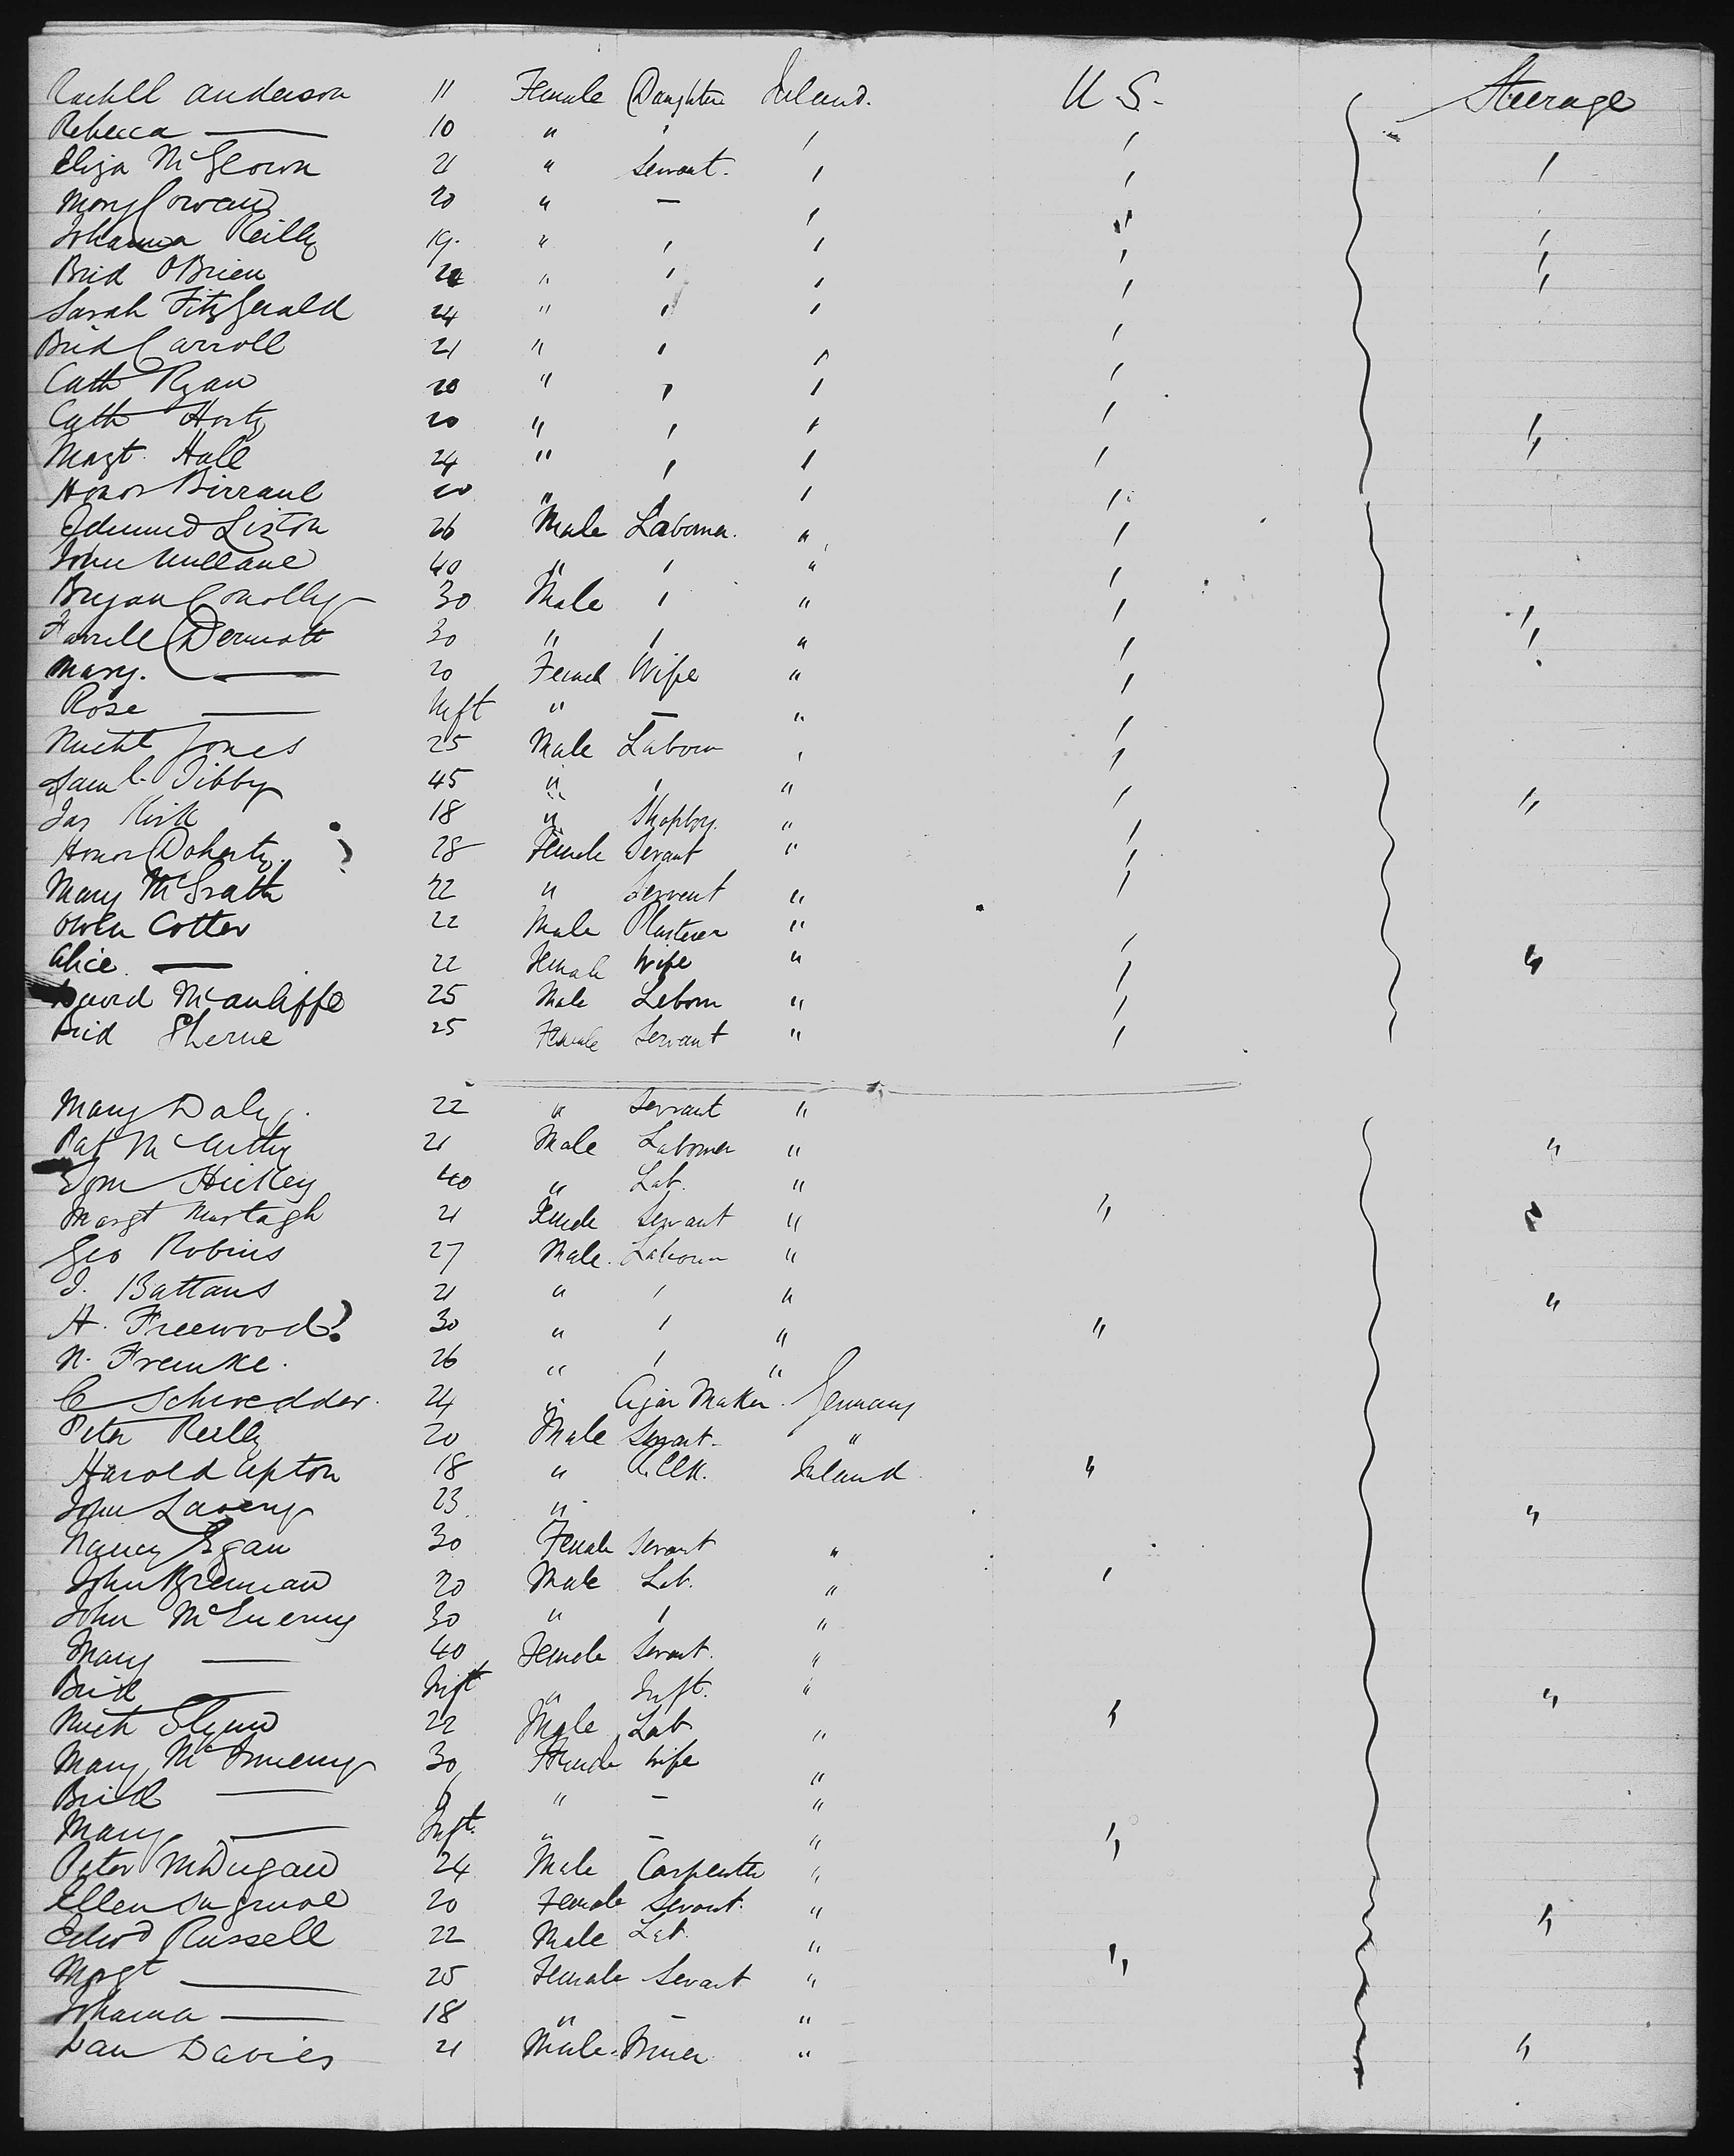 Rachell Anderson 11 Female Daughter Ireland. U.S. Steerage
Rebecca — 10 " " " "
Eliza McGeown 21 " Servant. " " "
Mary Cowan 20 " — " "
Johanna Reilly 19. " " " " "
Brid OBrien 22 " " " " "
Sarah FitzGerald 24 " " " " "
Brid Carroll 21 " " " "
Cath Ryan 20 " " " "
Cath 20 " " " " "
Magt. Hall 24 " " " " "
Honor 20 " " " "
Edmund Liston 26 Male Laborer. " "
John Mullane 40 " " " "
Bryan Conolly 30 Male " " " "
Farrell Dermott 30 " " " " "
Mary. — 20 Female Wife " "
Rose — Inft " — " "
Michl Jones 25 Male Laborer " "
Saml. Tibby 45 " " " "
Jas Kirk 18 " Shopboy. " " "
Honor Doherty 28 Female Servant " "
Mary McGrath 22 " Servent " "
Owen Cotter 22 Male Plasterer "
Alice. — 22 Female Wife " " "
David McAuliffe 25 Male Laborer " "
Brid 25 Female Servant " "
Mary Daly. 22 " Servant "
Pat McCarthy 21 Male Laborer " "
Hickey 40 " Lab. "
Margt Murtagh 21 Female Servant " " "
Geo Robins 27 Male. Laborer "
J. Battans 21 " " " "
A. Freewood? 30 " " " "
N. Fremke. 26 " " "
C Schredder. 24 " Cigar Maker. Germany
Peter Reilly 20 Male Servant - "
Harold Upton 18 " Clk. Ireland "
John Lavery 23. " "
Nancy Egan 30 Female Servant "
John Brennan 20 Male Lab. " "
John McEnerny 30 " " "
Mary — 40 Female Servant. "
Brid — Inft " Inft. " "
Mich Glynn 22 Male Lab " "
Mary McInnerny 30 Female Wife "
Brid — " — "
Mary — Inft. " — " "
Peter McDugan 24 Male Carpenter "
Ellen 20 Female Servant. " "
Edwd Russell 22 Male Lab. " "
Margt — 25 Female Servant "
Johanna — 18 " — "
Dan Davies 21 Male. Miner " "